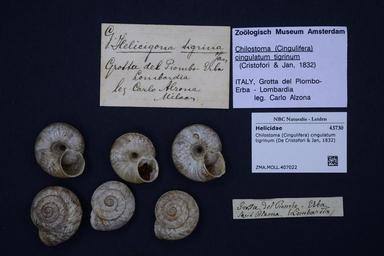 Helicigona tigrina
Jan
Grotta del Piombo-Erba
Lombardia
leg. Carlo Alzona
Milano
Zoölogisch Museum Amsterdam
Chilostoma (Cingulifera)
cingulatum tigrinum
(Cristofori & Jan, 1832)
ITALY, Grotta del Piombo-
Erba - Lombardia
leg. Carlo Alzona
NBC Naturalis - Leiden
Helicidae 43730
Chilostoma (Cingulifera) cingulatum
tigrinum (De Cristofori & Jan, 1832)
ZMA.MOLL.407022
Grotta del Piombo - Erba
Alzona (Lombardia)